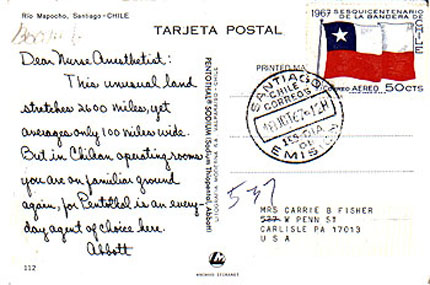 Río Mapocho, Santiago-CHILE
TARJETA POSTAL
Dear Nurse Anesthetist:
This unusual land
stretches 2600 miles, yet
averages only 100 miles wide.
But in Chilean operating rooms
you are on familiar ground
again, for Pentothal is an every-
day agent of choice here.
Abbott
112
PENTOTHAL® SODIUM (Sodium Thiopental, Abbott)
1967 SESQUICENTENARIO
DE LA BANDERA DE
CHILE
CORREO AEREO 50CTS
PRINTED MA
SANTIAGO
CHILE
CORREOS
1ER DIA
DE
EMISION
537
MRS CARRIE B FISHER
537 W PENN ST
CARLISLE PA 17013
U S A